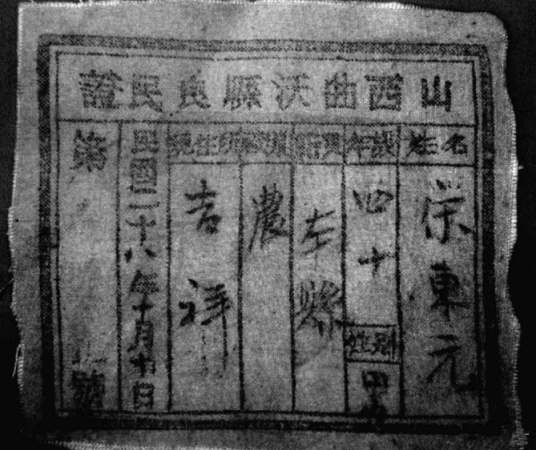 山西曲沃縣良民證
姓名
榮東元
年歲
四十
性別
男
本縣
農
現住所
吉祥
民國二十八年十月十日
第
號